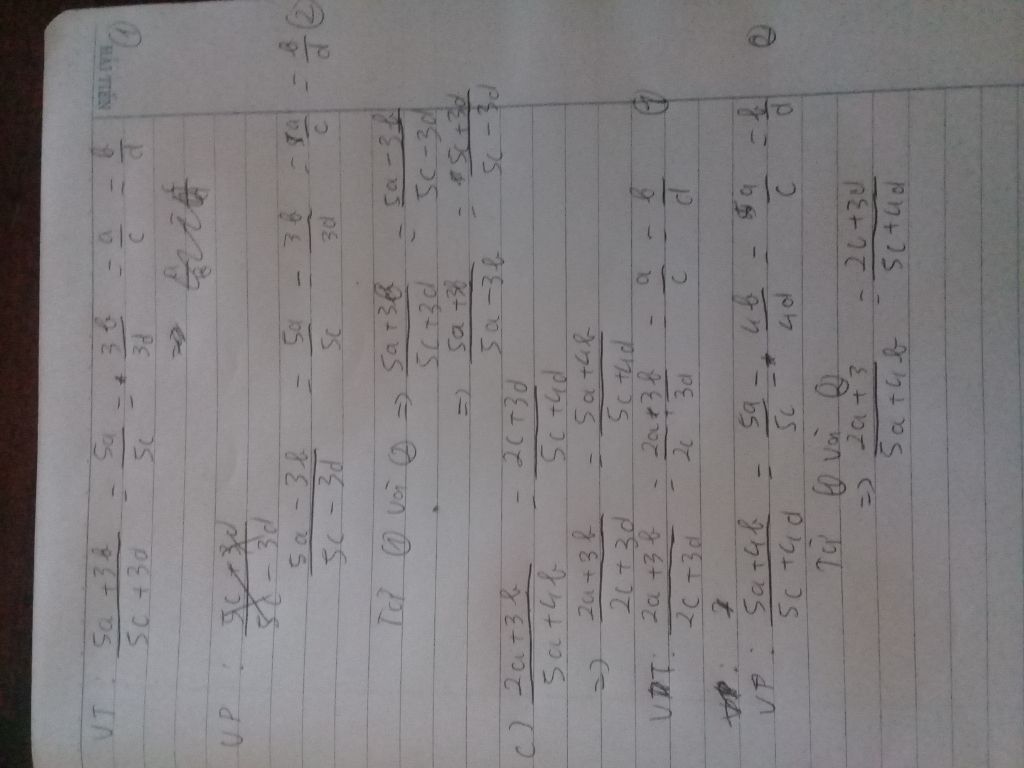 HẢI TIẾN
VT : (5a + 3b)/(5c + 3d) = 5a/5c = 3b/3d = a/c = b/d (1)
VP :
(5a - 3b)/(5c - 3d) = 5a/5c = 3b/3d = a/c = b/d (2)
Từ (1) với (2) => (5a + 3b)/(5c + 3d) = (5a - 3b)/(5c - 3d)
=> (5a + 3b)/(5a - 3b) = (5c + 3d)/(5c - 3d)
c) (2a + 3b)/(5a + 4b) = (2c + 3d)/(5c + 4d)
=> (2a + 3b)/(2c + 3d) = (5a + 4b)/(5c + 4d)
VT : (2a + 3b)/(2c + 3d) = 2a/2c = 3b/3d = a/c = b/d (1)
VP : (5a + 4b)/(5c + 4d) = 5a/5c = 4b/4d = a/c = b/d (2)
Từ (1) với (2)
=> (2a + 3)/(5a + 4b) = (2c + 3d)/(5c + 4d)